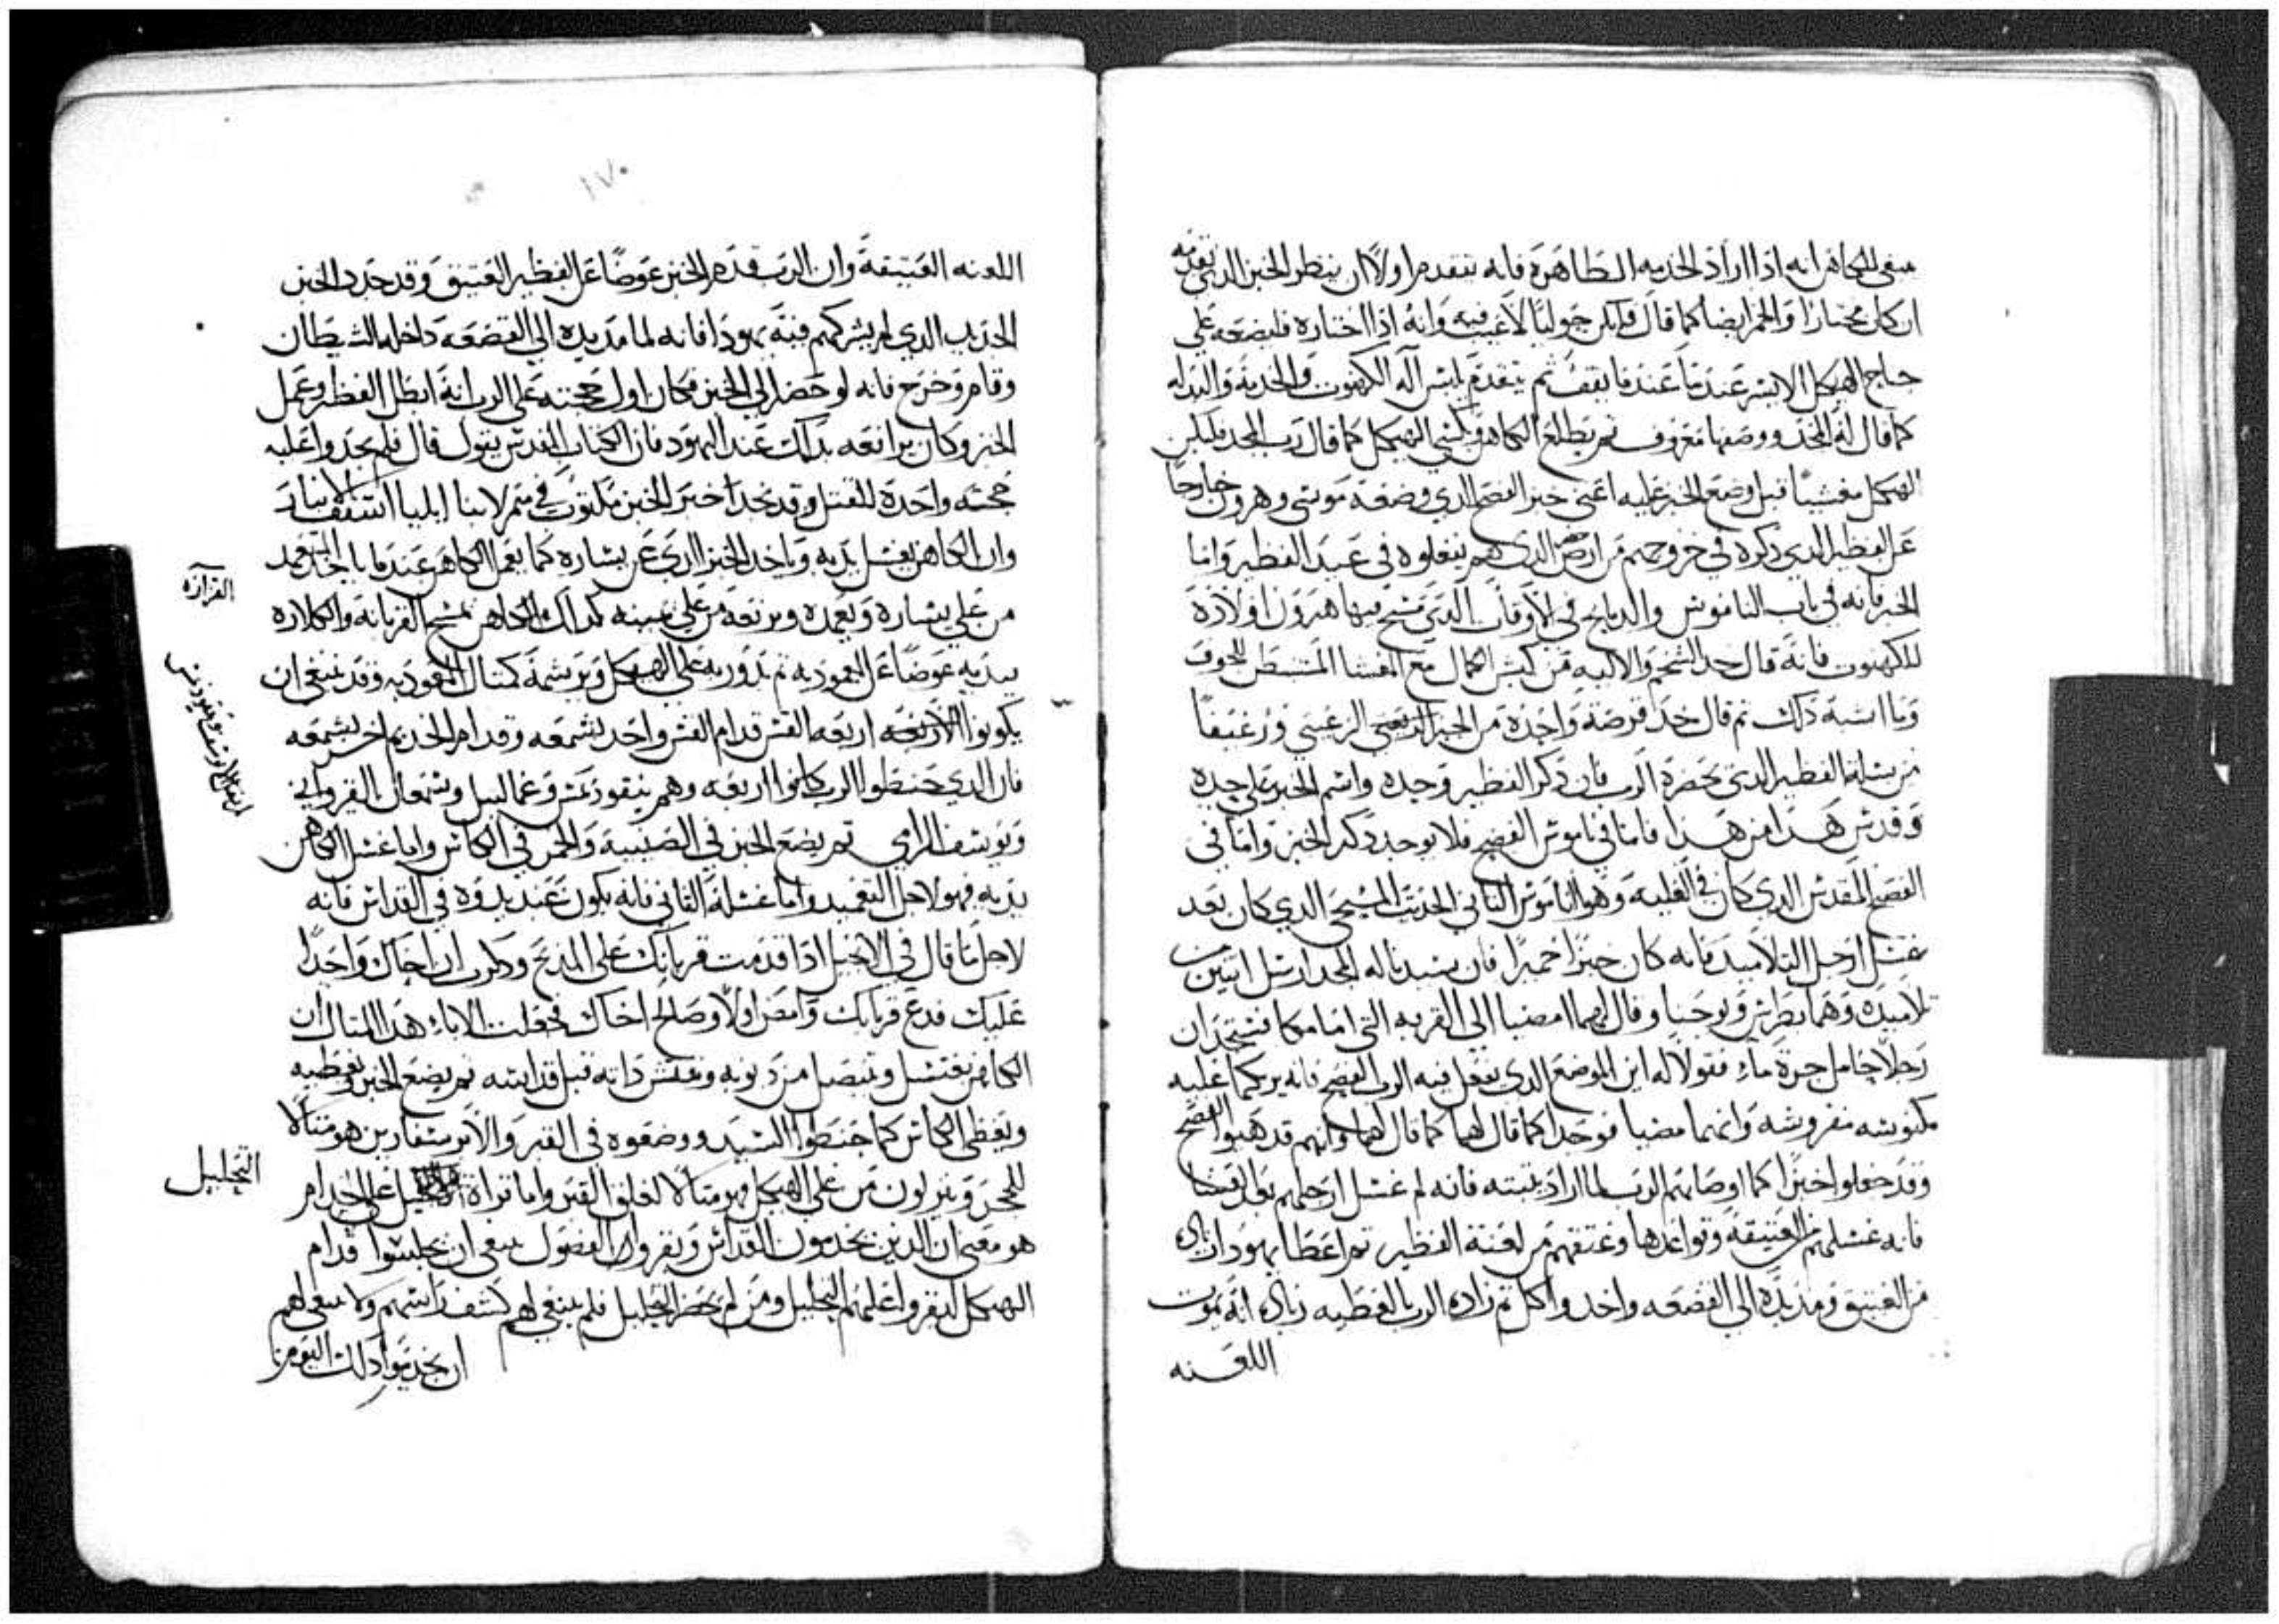 ينبغي للكاهن انه اذا اراد الخدمه الطاهرة فانه يتقدم اولاً ان ينظر الخبز الدي يقدمه
ان كان مختارا والخمر ايضا كما قال فليكن حوليا لا عيب فيه وانه اذا اختاره فليضعه على
جناح الهيكل الايسر عندما يقف ثم يتقدم يلبس آلة الكهنوت والخدمة والبدله
كما قال له المجد ووصفها معروف ثم يطلع الكاهن ويكسي الهيكل كما قال رب المجد فليكن
الهيكل مغشيا قبل وضع الخبز عليه اعني خبز الفصح الدي وضعه موسى وهرون خارجا
عن الفطير الدي دكره في خروجهم من ارض مصر الدي هم يفعلوه في عيد الفطير واما
الخبز فانه في باب الناموس والدبايح في الاوقات الدي مسح فيها هرون اولاده
للكهنوت فانه قال خد الشحم والاليه من كبش الكمال مع الغشا المنبسط للجوف
وما اشبه دلك ثم قال خد قرصة واحدة من الخبز الزيتي ورغيفاً
من سلة الفطير الدي بحضرة الرب فان دكر الفطير وحده واسم الخبز على حده
وقدس هدا من هدا فاما في ناموس الفصح فلا يوجد دكر الخبز واما في
الفصح المقدس الدي كان في العليه وهو الناموس التاني الحديث المسيحي الدي كان بعد
غسل ارجل التلاميد فانه كان خبزا خميرا فان سيدنا له المجد ارسل اتنين من
تلاميده وهما بطرس ويوحنا وقال لهما امضيا الى القريه التي امامكما فستجدان
رجلا حامل جرة ماء فقولا له اين الموضع الدي يفعل فيه الرب الفصح فانه يريكما عليه
مكنوسه مفروشه وانهما مضيا فوجدا كما قال لهما كما قال لهما وانهم قد هيوا الفصح
وقد جعلوا خبزا كما اوصاهم الرب لما اراد فانه لم غسل ارجلهم بعد العشا
فانه غسلهم من العتيقه وقواعدها وعتقهم من لعنة الفطير ثم اعطا يهودا
من العتيق ومد يده الى القصعه واخد واكل ثم زاده الرب العطيه انه يموت
اللعنه
١٧٠
اللعنه العتيقة وان الرب قدم الخبز عوضاً عن الفطير العتيق وقد جدد الخبز
الجديد الدي لم يشركهم فيه يهودا فانه لما مد يده الى القصعه داخله الشيطان
وقام وخرج فانه لو حضر الى الخبز فكان اول حجته على الرب انه ابطل الفطر وعمل
الخبز وكان يرافعه بدلك عند اليهود فان الكتاب المقدس يقول قال فلم يجدوا عليه
حجته واحدة للقتل وقد نجد اختبر الخبز مكتوب في ميمر لابينا ايليا اسقف
وان الكاهن يغسل يديه وياخد الخبز الدي عن يساره كما يعمل الكاهن عندما ياخد
من على يساره ويعمده ويرفعه من على يمينه كدلك الكاهن يمسح القربانة والكلاره
بيديه عوضاً عن المعموديه ثم يدور به على الهيكل ويرشمه كمتال المعوديه وقد ينبغي ان
يكونوا الاربعه اربعه القس قدام القس واحد بشمعه وقدام الخديم اخر بشمعه
فان الدي حنطوا الرب كانوا اربعه وهم نيقوديمس وغمالييل وشمعان القرواني
ويوسف الرامي ثم يضع الخبز في الصينية والخمر في الكاس واما غسل الكاهن
يديه فهو لاجل التعميد واما غسله التاني فانه يكون عند بدوه في القداس فانه
لاجل ما قال في الانجيل ادا قدمت قربانك على المدبح ودكرت ان اخاك واجداً
عليك فدع قربانك وامض اولاً وصالح اخاك فجعلت الاباء هدا المتال ان
الكاهن يغتسل ويتنصل من دنوبه ويفتش داته قبل قداسه ثم يضع الخبز ويغطيه
ويغطى الكاس كما حنطوا السيد ووضعوه في القبر والابرسفارين هو متالا
للحجر وينزلون من على الهيكل فهو متالا لغلق القبر واما قراة التحليل على الخدام
هو معني ان الدين يخدمون القداس ويقروا الفصول ينبغي ان يجلسوا قدام
الهيكل ليقروا عليهم التحليل ومن لم يحضر التحليل فلم ينبغي لهم كشف راسهم ولا ينبغي لهم
ان يخدموا دلك اليوم من
التحليل